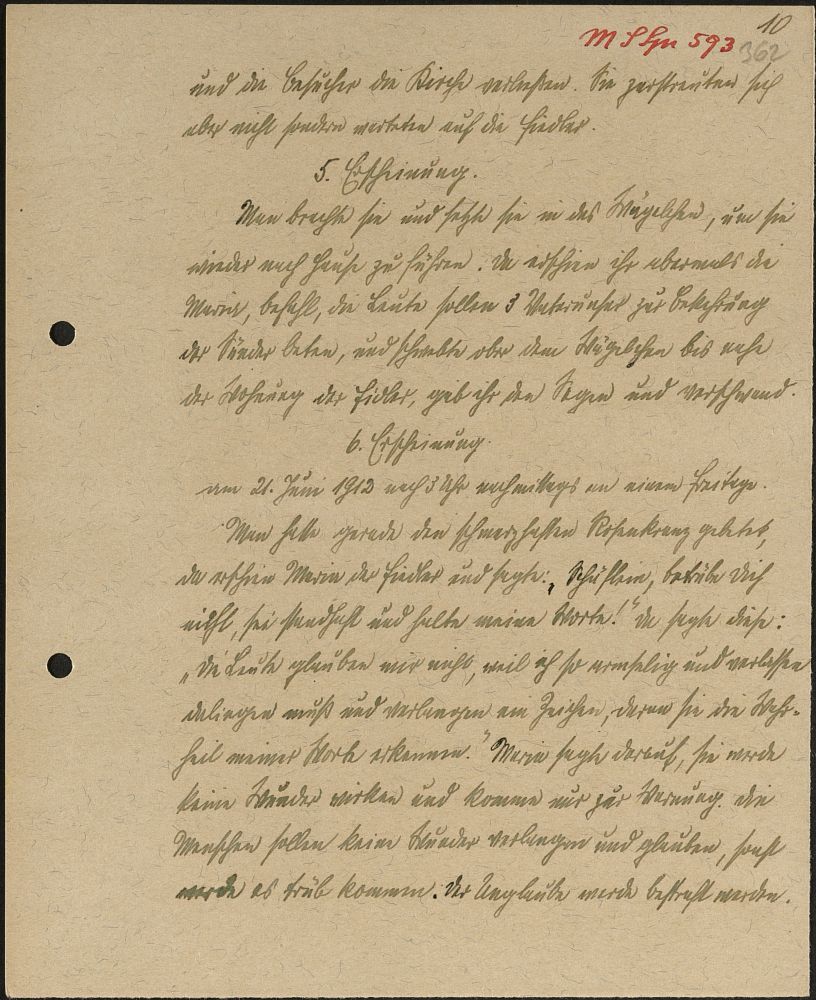 10
M S Gn 593
362
und die Besucher die Kirche verließen. Sie zerstreuten sich
aber nicht sondern warteten auf die Fiedler.
5. Erscheinung.
Man brachte sie und setzte sie in das Wägelchen, um sie
wieder nach Hause zu führen. Da erschien ihr abermals die
Maria, befahl, die Leute sollen 3 Vaterunser zur Bekehrung
der Sünder beten, und schwebte ober dem Wägelchen bis nahe
der Wohnung der Fidler, gab ihr den Segen und verschwand.
6. Erscheinung.
am 21. Juni 1912 nach 3 Uhr nachmittags an einem Freitage.
Man hatte gerade den schmerzhaften Rosenkranz gebetet,
da erschien Maria der Fiedler und sagte: „Schäflein, betrübe Dich
nicht, sei standhaft und halte meine Worte!" Da sagte diese:
„Die Leute glauben mir nicht, weil ich so armselig und verlassen
daliegen muß und verlangen ein Zeichen, daran sie die Wahr-
heit meiner Worte erkennen." Maria sagte darauf, sie werde
keine Wunder wirken und komme nur zur Warnung. Die
Menschen sollen keine Wunder verlangen und glauben, sonst
werde es trüb kommen. Der Unglaube werde bestraft werden.